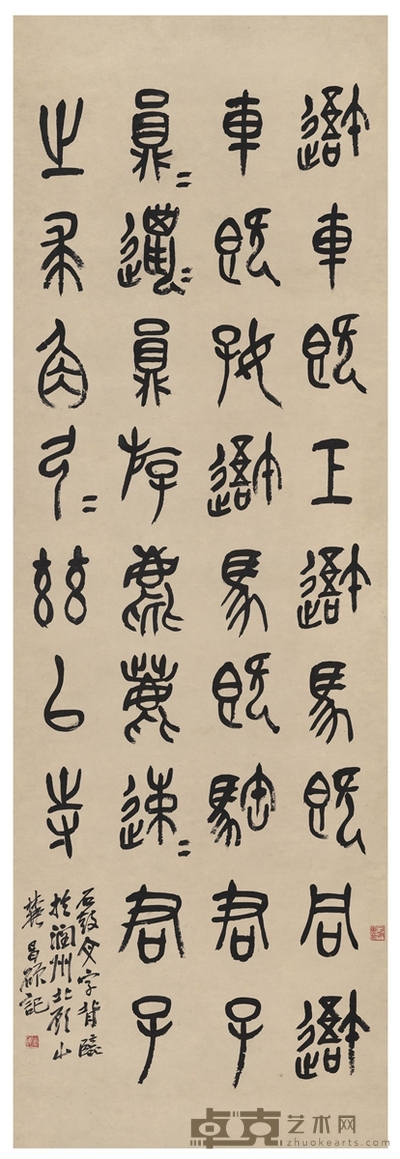 吾車既工吾馬既同吾
車既好吾馬既騊君子
員=邋=員斿麀鹿速=君子
之求角弓=兹以寺
石鼓文字背臨
於潤州北顧山
麓昌碩記
卓克艺术网
zhuokearts.com